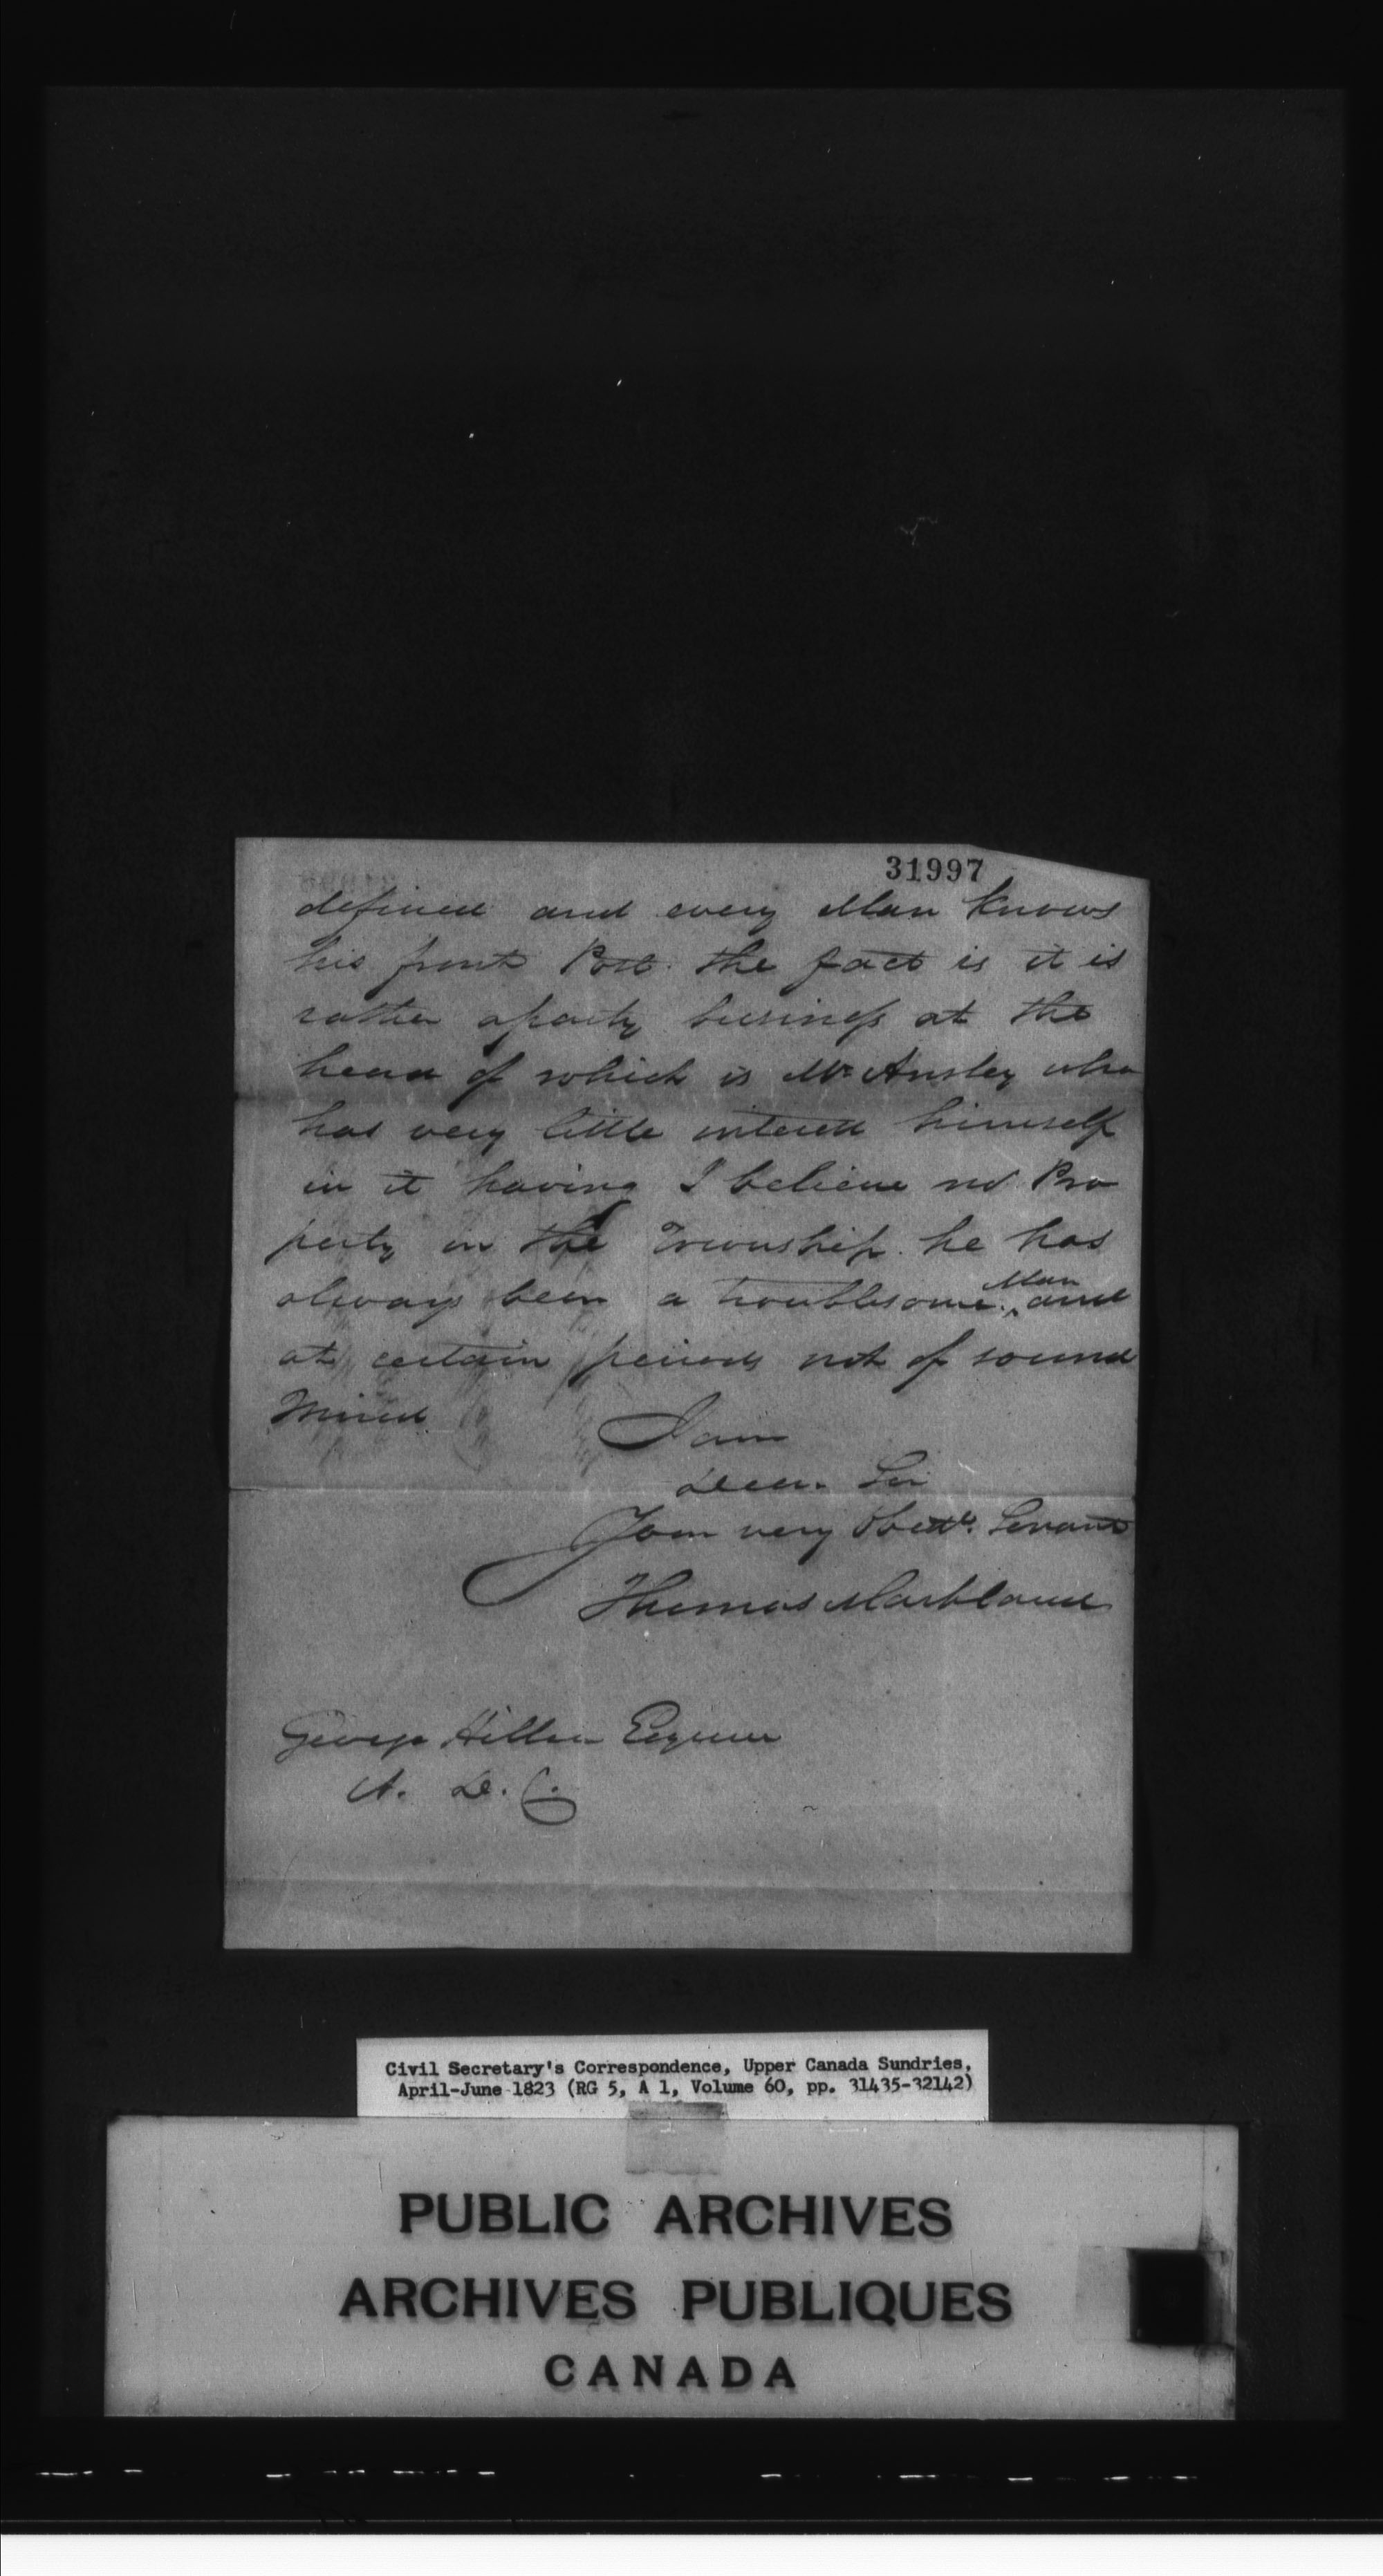 31997
defined and every Man knows
his front Post. the fact is it is
rather a party business at the
head of which is Mr. Ansley who
has very little interest himself
in it having I believe no Pro
perty in the Township. he has
always been a troublesome Man and
at certain periods not of sound
Mind.
I am
Dear Sir
Your very Obedt. Servant
Thomas Markland
George Hillier Esquire
A. D. C.
Civil Secretary's Correspondence, Upper Canada Sundries,
April-June 1823 (RG 5, A 1, Volume 60, pp. 31435-32142)
PUBLIC ARCHIVES
ARCHIVES PUBLIQUES
CANADA